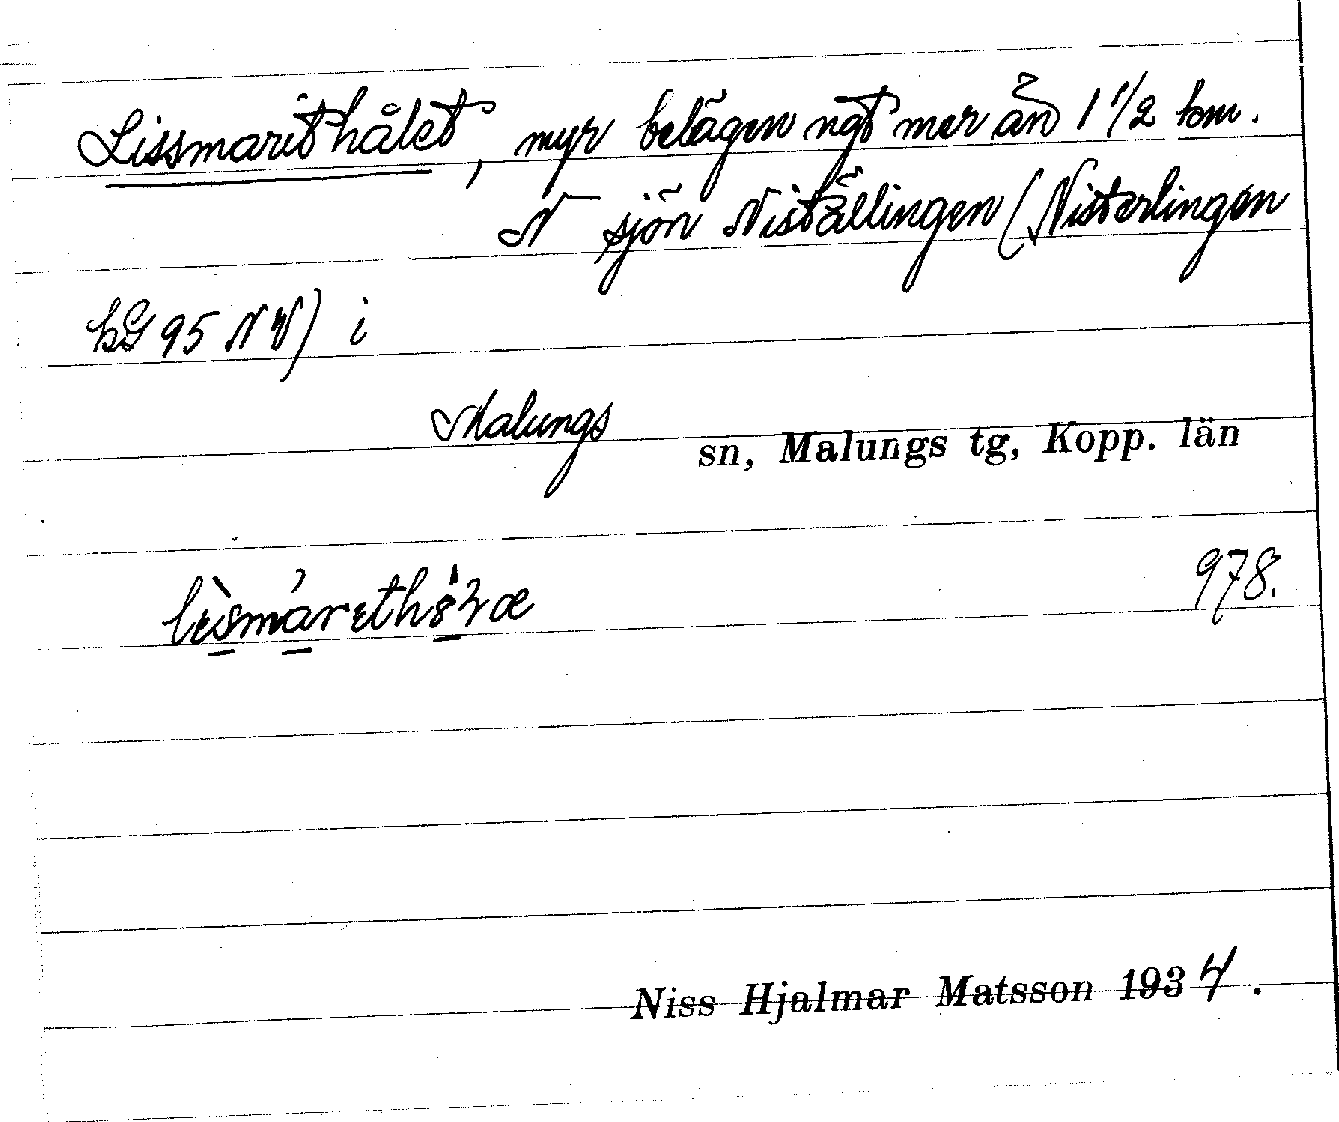 Lissmarithålet, myr belägen ngt mer än 1 1/2 km.
N sjön Niställingen (Nisterlingen
kG 95 NV) i
Malungs sn, Malungs tg, Kopp. län
978.
Niss Hjalmar Matsson 1934.